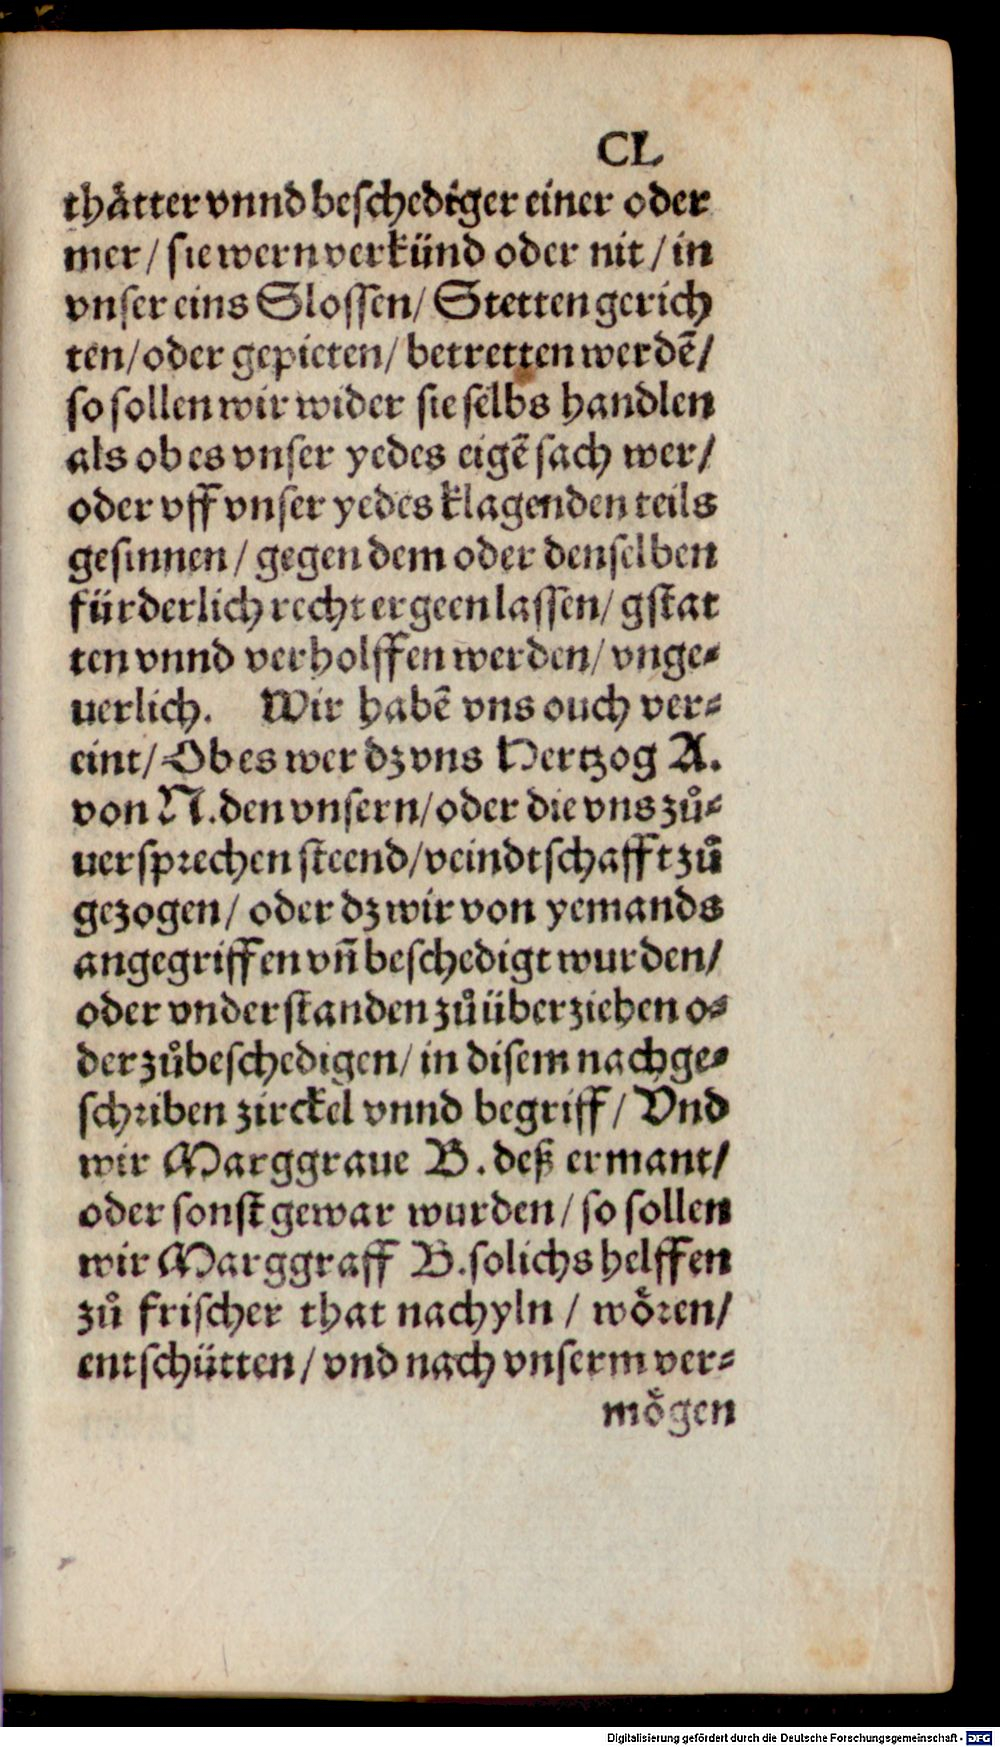 CL
thåtter vnnd beschediger einer oder
mer / sie wern verkünd oder nit / in
vnser eins Slossen / Stetten gerich
ten / oder gepieten / betretten werdē /
so sollen wir wider sie selbs handlen
als ob es vnser yedes eigē sach wer /
oder vff vnser yedes klagenden teils
gesinnen / gegen dem oder denselben
fürderlich recht ergeen lassen / gstat
ten vnnd verholffen werden / vnge⸗
uerlich. Wir habē vns ouch ver⸗
eint / Ob es wer dz vns Hertzog A.
von N. den vnsern / oder die vns zů⸗
uersprechen steend / veindtschafft zů
gezogen / oder dz wir von yemands
angegriffen vn̄ beschedigt wurden /
oder vnderstanden zů überziehen o⸗
der zů beschedigen / in disem nachge⸗
schriben zirckel vnnd begriff / Vnd
wir Marggraue B. deß ermant /
oder sonst gewar wurden / so sollen
wir Marggraff B. solichs helffen
zů frischer that nachyln / wȯ̈ren /
entschütten / vnd nach vnserm ver⸗
mȯ̈gen
Digitalisierung gefördert durch die Deutsche Forschungsgemeinschaft - DFG